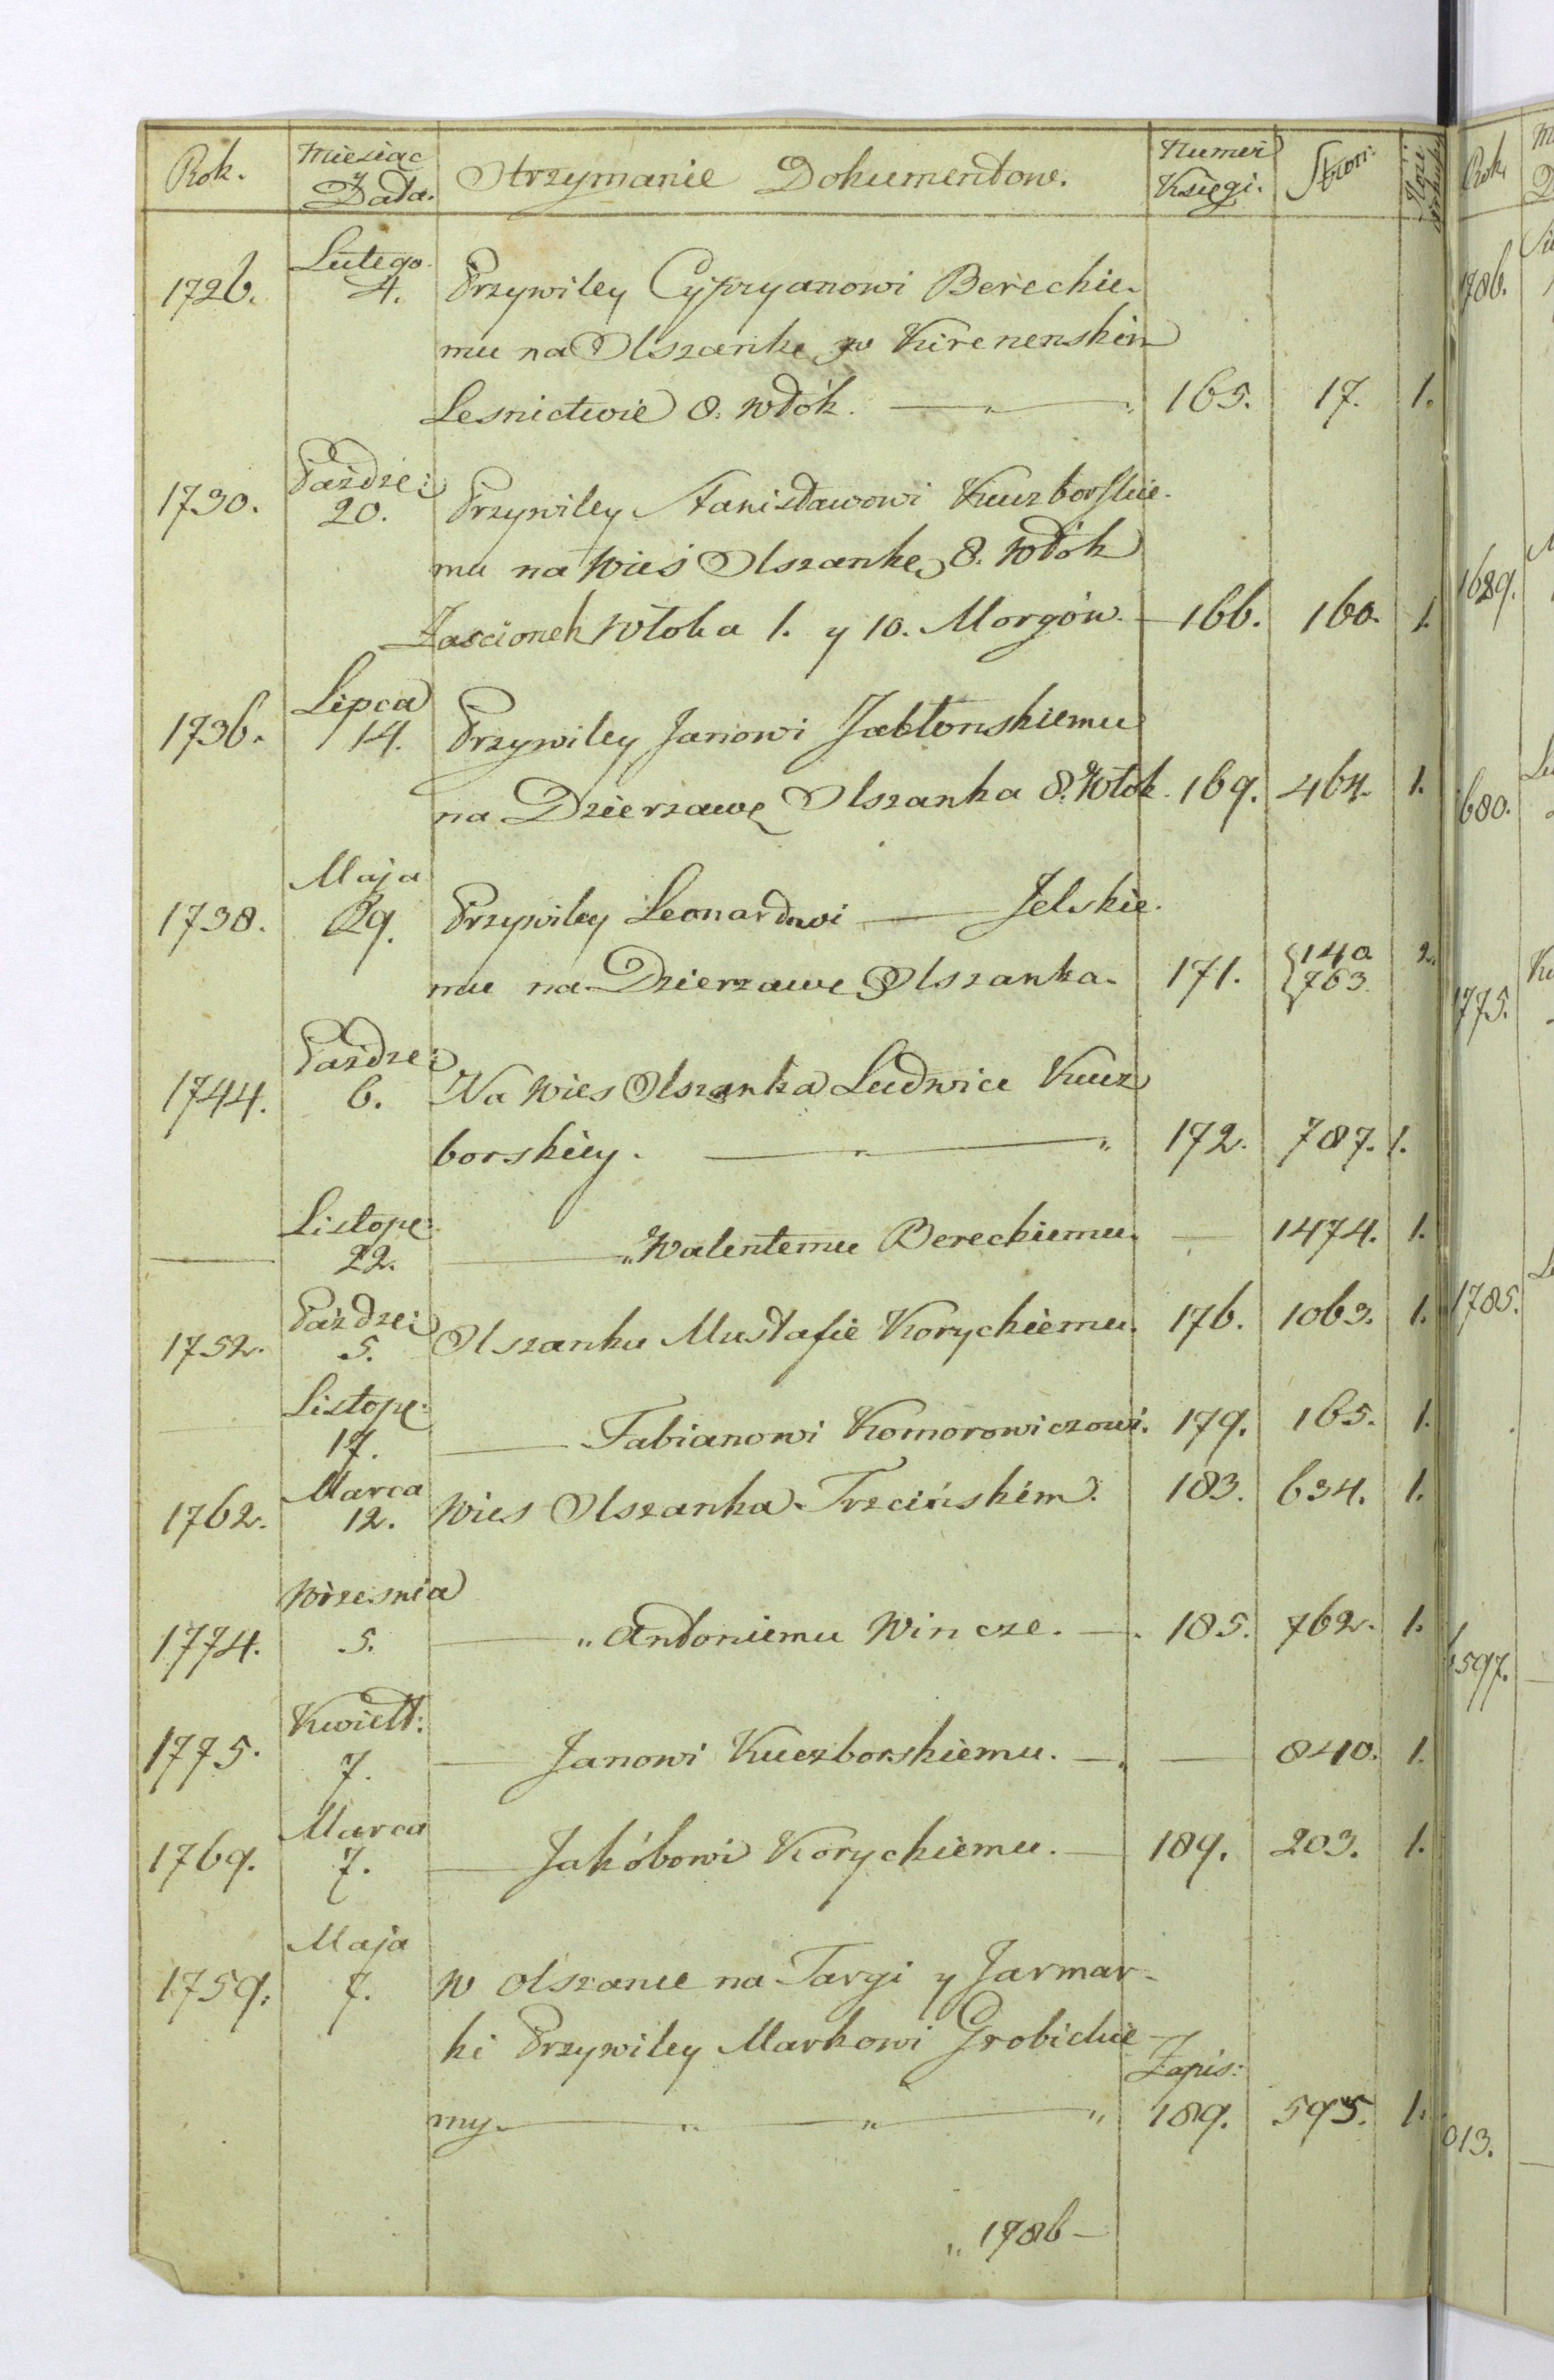 Rok. Miesiąc y Data. Otrzymanie Dokumentow. Numer Księgi. Stron:
1726. Lutego 4. Przywiley Cypryanowi Bereckie-
mu na Olszankę w Kirenenskim
Lesnictwie 8. włók. 165. 17. 1.
1730. Paźdze: 20. Przywiley Stanisławowi Kuczborskie-
mu na Wieś Olszankę 8. Włók
Zascionek Włoka 1. y 10. Morgów. 166. 160. 1.
1736. Lipca 14. Przywiley Janowi Jabłonskiemu
na Dzierzawę Olszanka 8. Włok. 169. 464. 1.
1738. Maja 29. Przywiley Leonardowi — Jelskie-
mu na Dzierzawę Olszanka. 171. {140 763. 2.
1744. Paźdze: 6. Na Wies Olszanka Ludwice Kucz
borskiey. 172. 787. 1.
— Listopa: 22. — „ Walentemu Bereckiemu. — 1474. 1.
1752. Paźdze: 5. Olszanka Mustafie Koryckiemu. 176. 1063. 1.
Listopa: 17. — Fabianowi Komorowiczowi. 179. 165. 1.
1762. Marca 12. Wies Olszanka Trzcińskim. 183. 634. 1.
1774. Wrzesnia 5. — „ Antoniemu Wincze. — 185. 762. 1.
1775. Kwiet: 7. — Janowi Kuczborskiemu. — — 840. 1.
1769. Marca 7. — Jakóbowi Koryckiemu. — 189. 203. 1.
1759. Maja 7. w Olszanie na Targi y Jarmar-
ki Przywiley Markowi Grobickie-
my. — „ — „ — „ Zapis: 189. 595. 1.
„ 1786 —